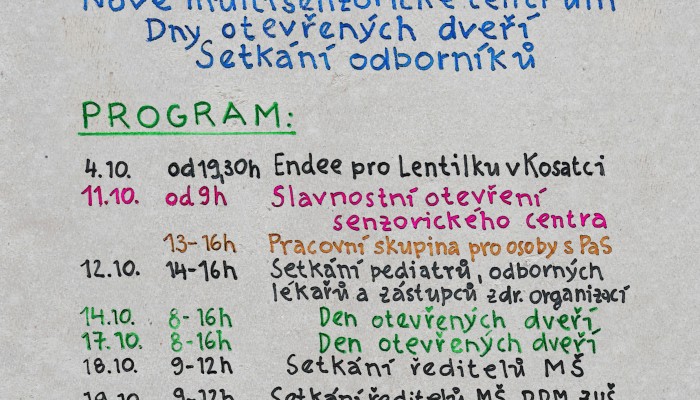 Nové multisenzorické centrum
Dny otevřených dveří
Setkání odborníků
PROGRAM:
4.10. od 19,30h Endee pro Lentilku v Kosatci
11.10. od 9h Slavnostní otevření
senzorického centra
13-16h Pracovní skupina pro osoby s PaS
12.10. 14-16h Setkání pediatrů, odborných
lékařů a zástupců zdr. organizací
14.10. 8-16h Den otevřených dveří
17.10. 8-16h Den otevřených dveří
18.10. 9-12h Setkání ředitelů MŠ
19.10. 9-12h Setkání ředitelů MŠ, DDM, ZUŠ